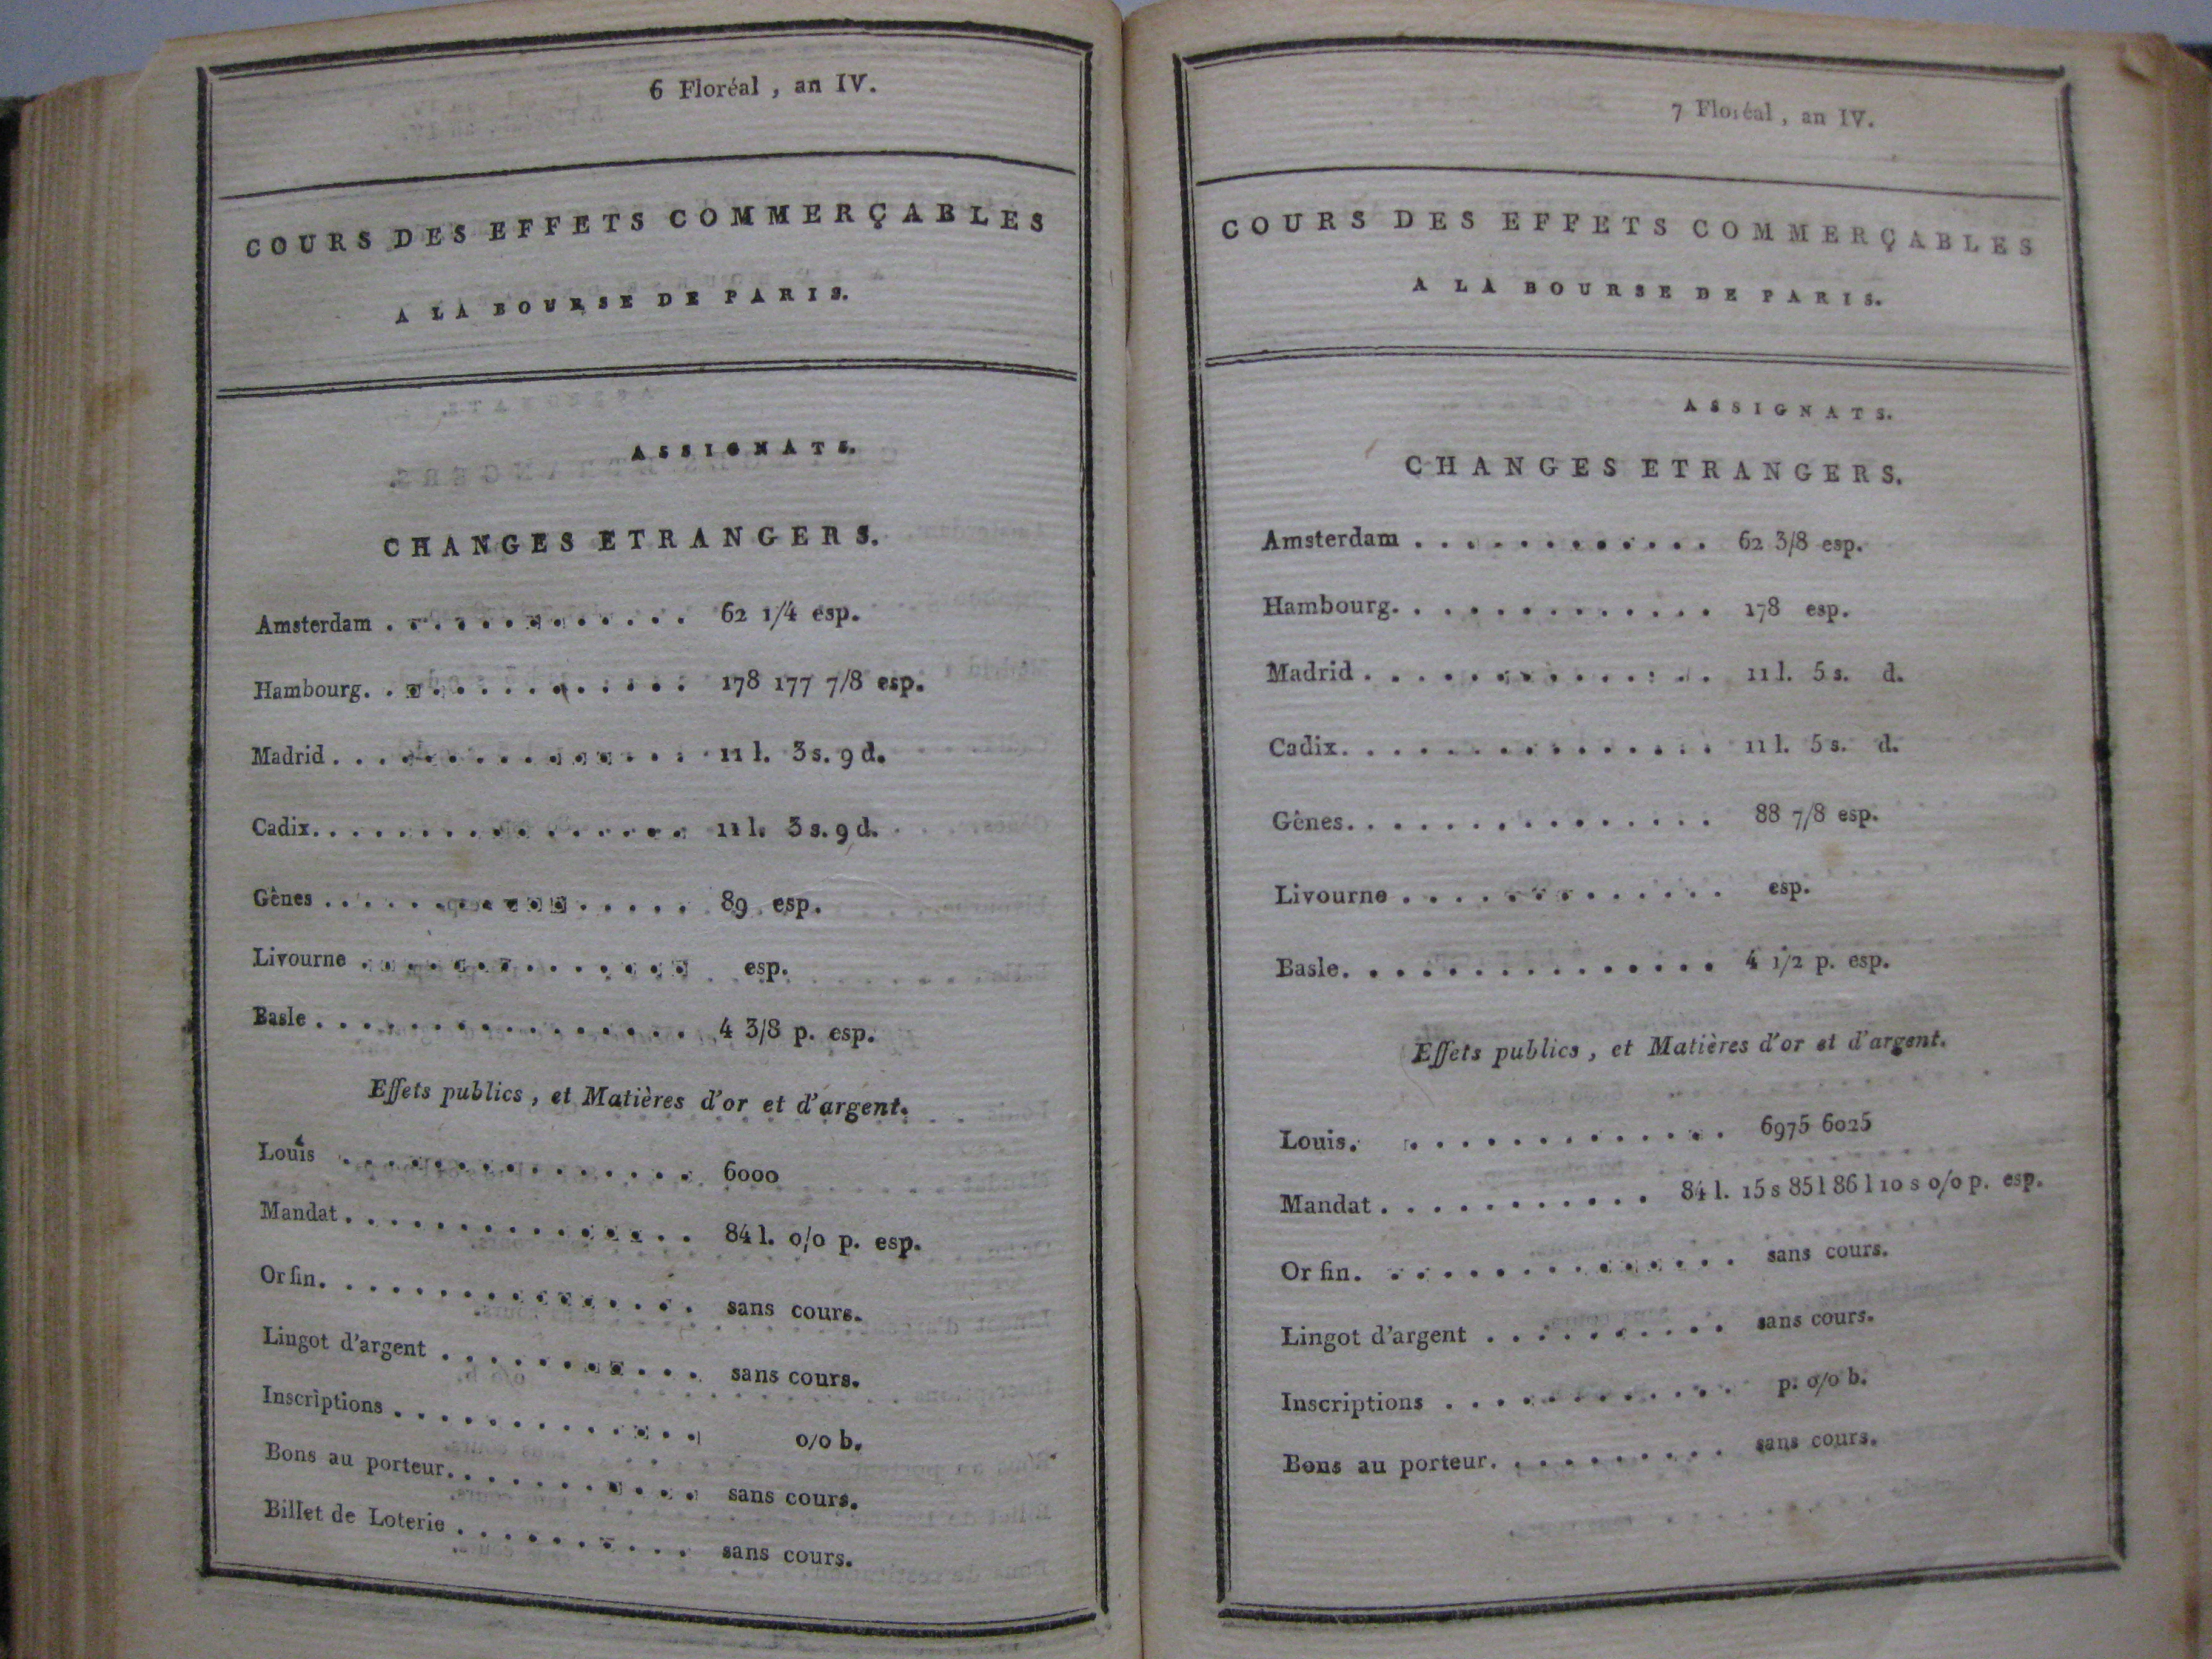 6 Floréal , an IV.
COURS DES EFFETS COMMERÇABLES
A LA BOURSE DE PARIS.
ASSIGNATS.
CHANGES ETRANGERS.
Amsterdam . . . . . . . . . . . . 62 1/4 esp.
Hambourg. . . . . . . . . . . . . 178 177 7/8 esp.
Madrid . . . . . . . . . . . . . . 11 l. 3 s. 9 d.
Cadix. . . . . . . . . . . . . . . 11 l. 3 s. 9 d.
Gênes . . . . . . . . . . . . . . 89 esp.
Livourne . . . . . . . . . . . . . esp.
Basle . . . . . . . . . . . . . . . 4 3/8 p. esp.
Effets publics , et Matières d'or et d'argent.
Louis . . . . . . . . . . . . . . 6000
Mandat . . . . . . . . . . . . . . 84 l. o/o p. esp.
Or fin. . . . . . . . . . . . . . . sans cours.
Lingot d'argent . . . . . . . . . . . sans cours.
Inscriptions . . . . . . . . . . . . . o/o b.
Bons au porteur. . . . . . . . . . . sans cours.
Billet de Loterie . . . . . . . . . . sans cours.
7 Floréal , an IV.
COURS DES EFFETS COMMERÇABLES
A LA BOURSE DE PARIS.
ASSIGNATS.
CHANGES ETRANGERS.
Amsterdam . . . . . . . . . . . . 62 3/8 esp.
Hambourg. . . . . . . . . . . . . 178 esp.
Madrid . . . . . . . . . . . . . . 11 l. 5 s. d.
Cadix. . . . . . . . . . . . . . . 11 l. 5 s. d.
Gênes. . . . . . . . . . . . . . . 88 7/8 esp.
Livourne . . . . . . . . . . . . . esp.
Basle. . . . . . . . . . . . . . . 4 1/2 p. esp.
Effets publics , et Matières d'or et d'argent.
Louis. . . . . . . . . . . . . . 6975 6025
Mandat . . . . . . . . . . . 84 l. 15 s 85 l 86 l 10 s o/o p. esp.
Or fin. . . . . . . . . . . . . . . sans cours.
Lingot d'argent . . . . . . . . . . sans cours.
Inscriptions . . . . . . . . . . . . p. o/o b.
Bons au porteur. . . . . . . . . . sans cours.